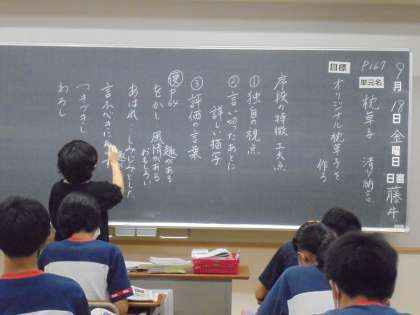 9月18日金曜日
日直 藤井
P167
単元名 枕草子 清少納言
目標 オリジナル枕草子を作る
序段の特徴、工夫点
①独自の視点
②言い切ったあとに
詳しい描写
③評価の言葉
便 P64
をかし 趣がある
風情がある
おもしろい
あはれ しみじみとした
言ふべきにあらず
つきづきし
わろし